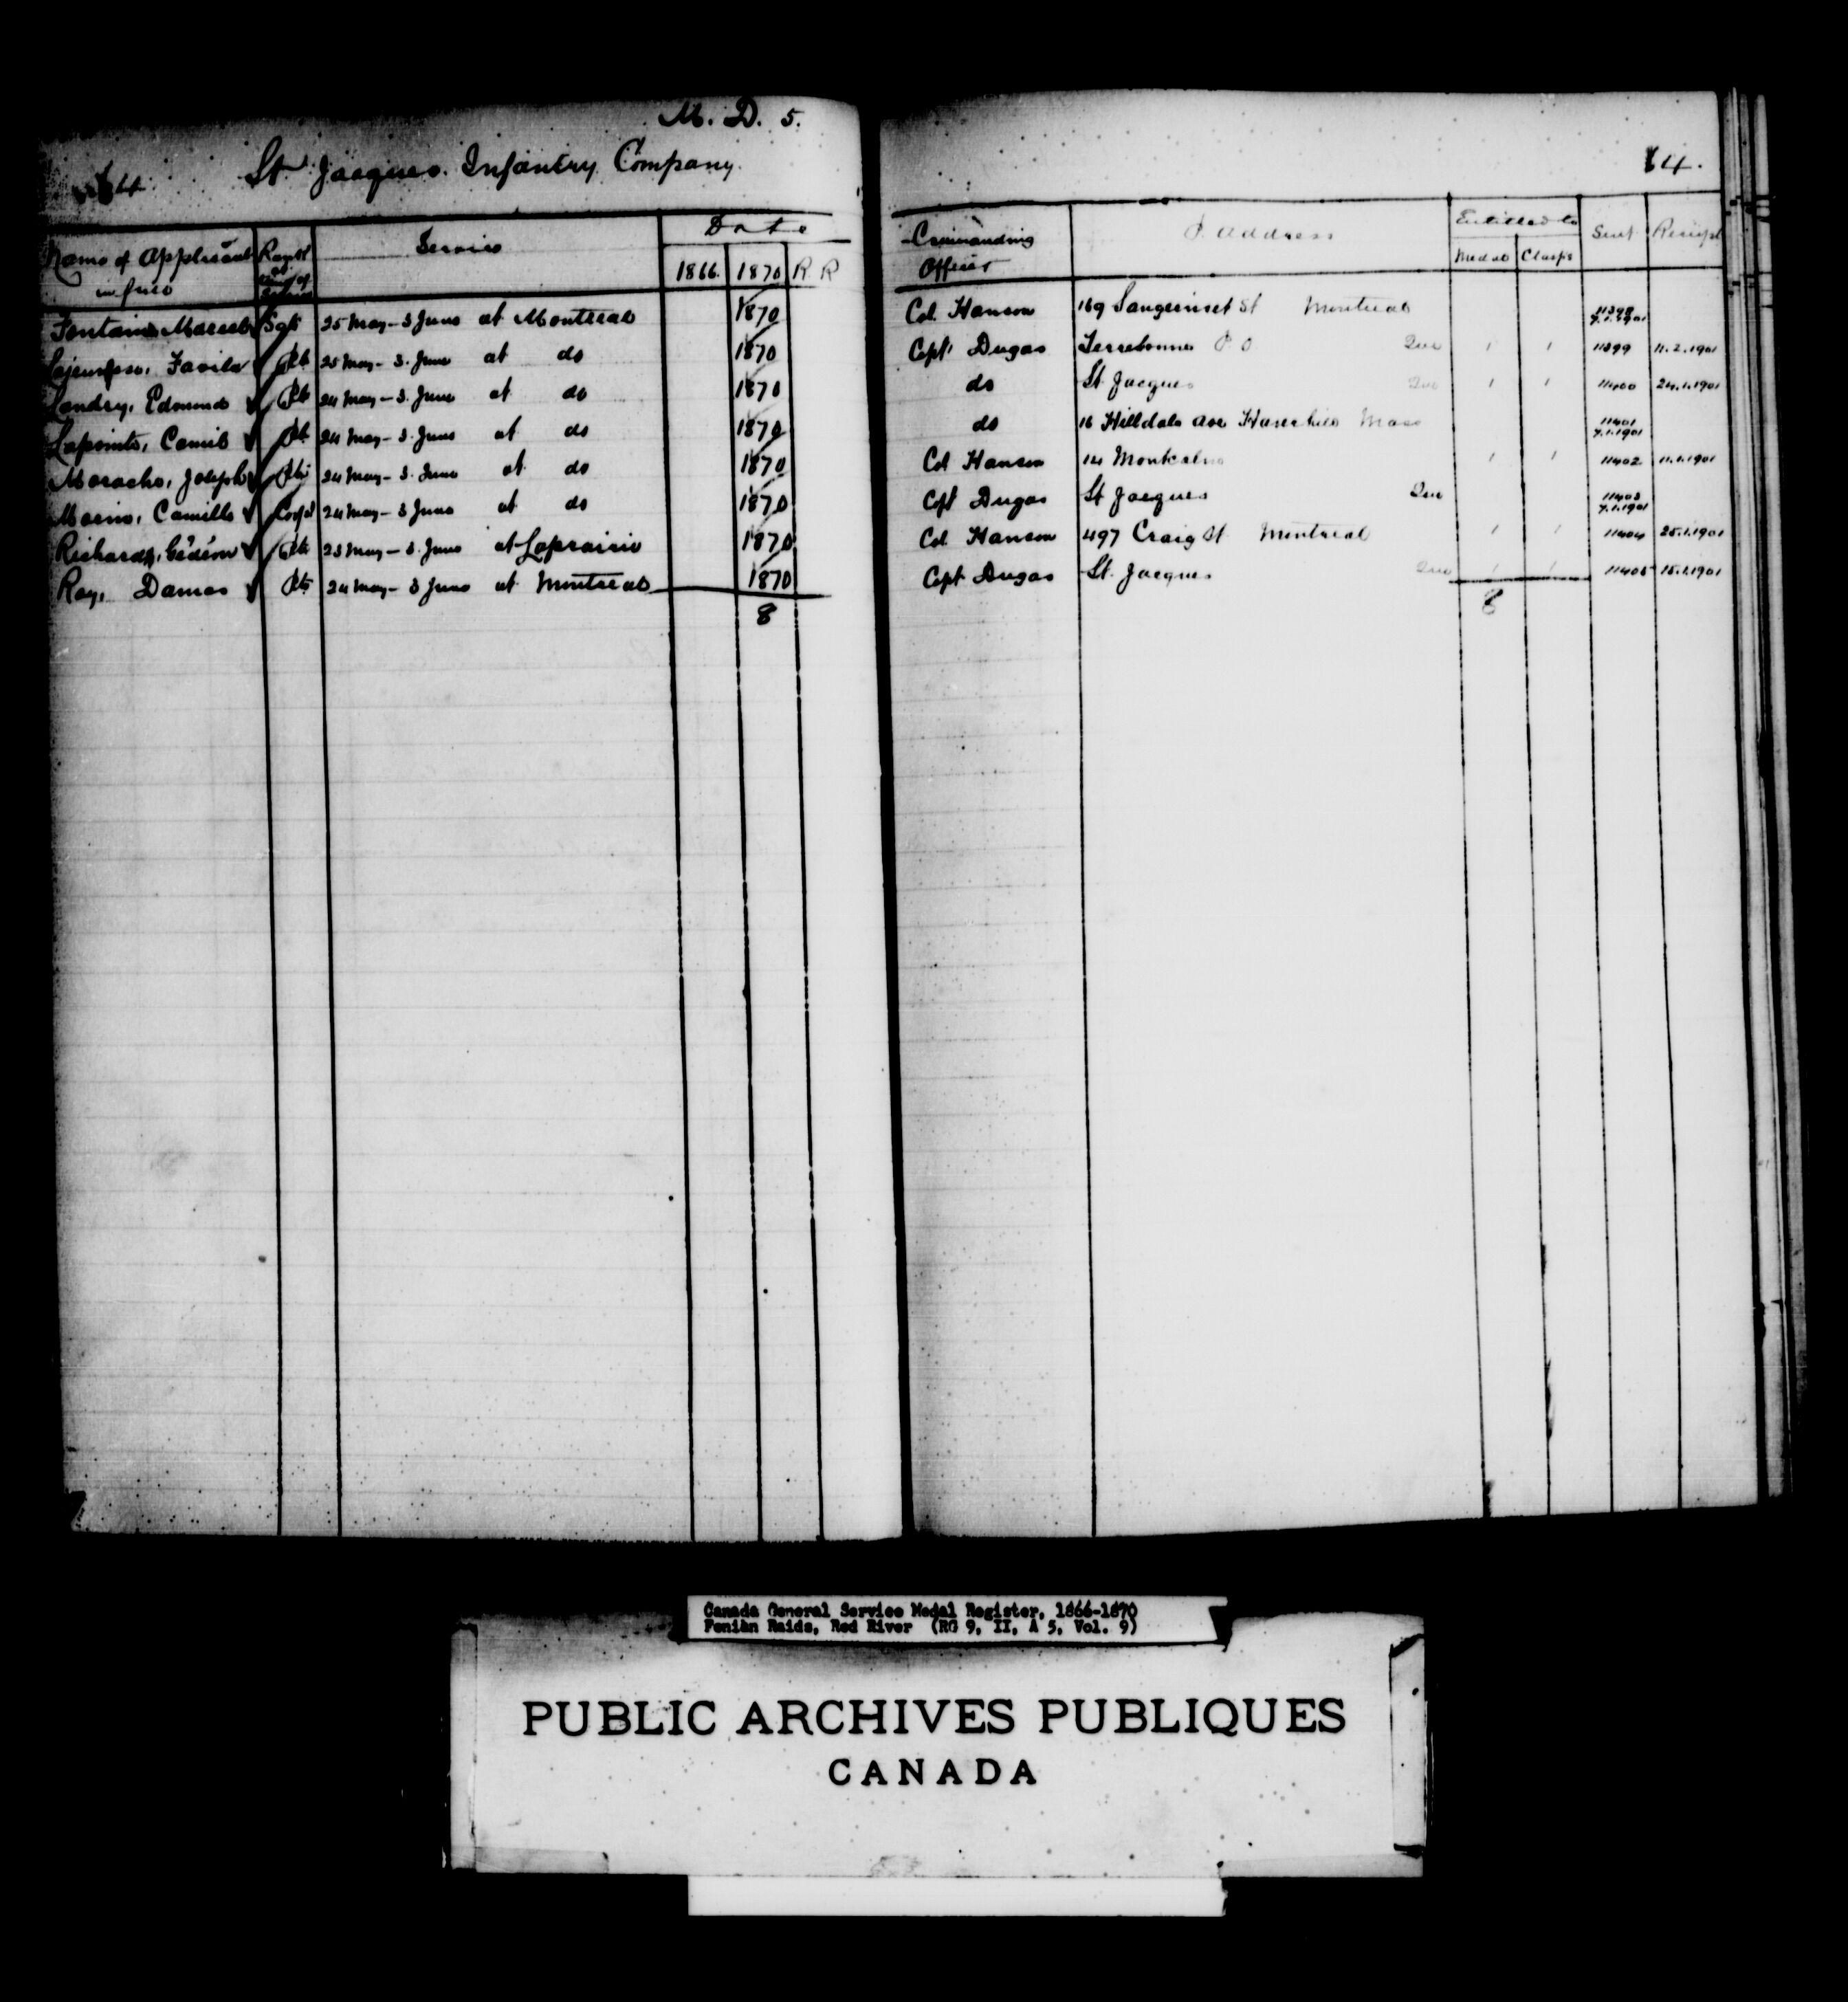 M. D. 5.
St Jacques Infantry Company
64
Name of Applicant in full Rank at time of Service Service Date
1866 1870 R R
Fontaine Marcel Sgt 25 May - 3 June at Montreal 1870
Favila Pte 25 May - 3. June at do 1870
Landry, Edmund Pte 24 May - 3. June at do 1870
Lapointe, Camil Pte 24 May - 3. June at do 1870
Morache, Joseph Pte 24 May - 3. June at do 1870
Morin, Camille Corpl 24 May - 3 June at do 1870
Richard, Gédéon Pte 23 May - 3. June at Laprairie 1870
Roy, Damas Pte 24 May - 3 June at Montreal 1870
8
64.
Commanding Officer P. Address Entitled to Sent Receipt
Medal Clasps
Col. Hanson 169 Sanguinet St Montreal 11398 7.1.1901
Capt. Dugas Terrebonne P O Que 1 1 11399 11.2.1901
do St Jacques Que 1 1 11400 24.1.1901
do 16 Hilldale Ave Haverhill Mass 11401 7.1.1901
Col Hanson 14 Montcalm 1 1 11402 11.1.1901
Capt Dugas St Jacques Que 11403 7.1.1901
Col Hanson 497 Craig St Montreal 1 1 11404 25.1.1901
Capt Dugas St. Jacques Que 1 1 11405 15.1.1901
8
Canada General Service Medal Register, 1866-1870
Fenian Raids, Red River (RG 9, II, A 5, Vol. 9)
PUBLIC ARCHIVES PUBLIQUES
CANADA